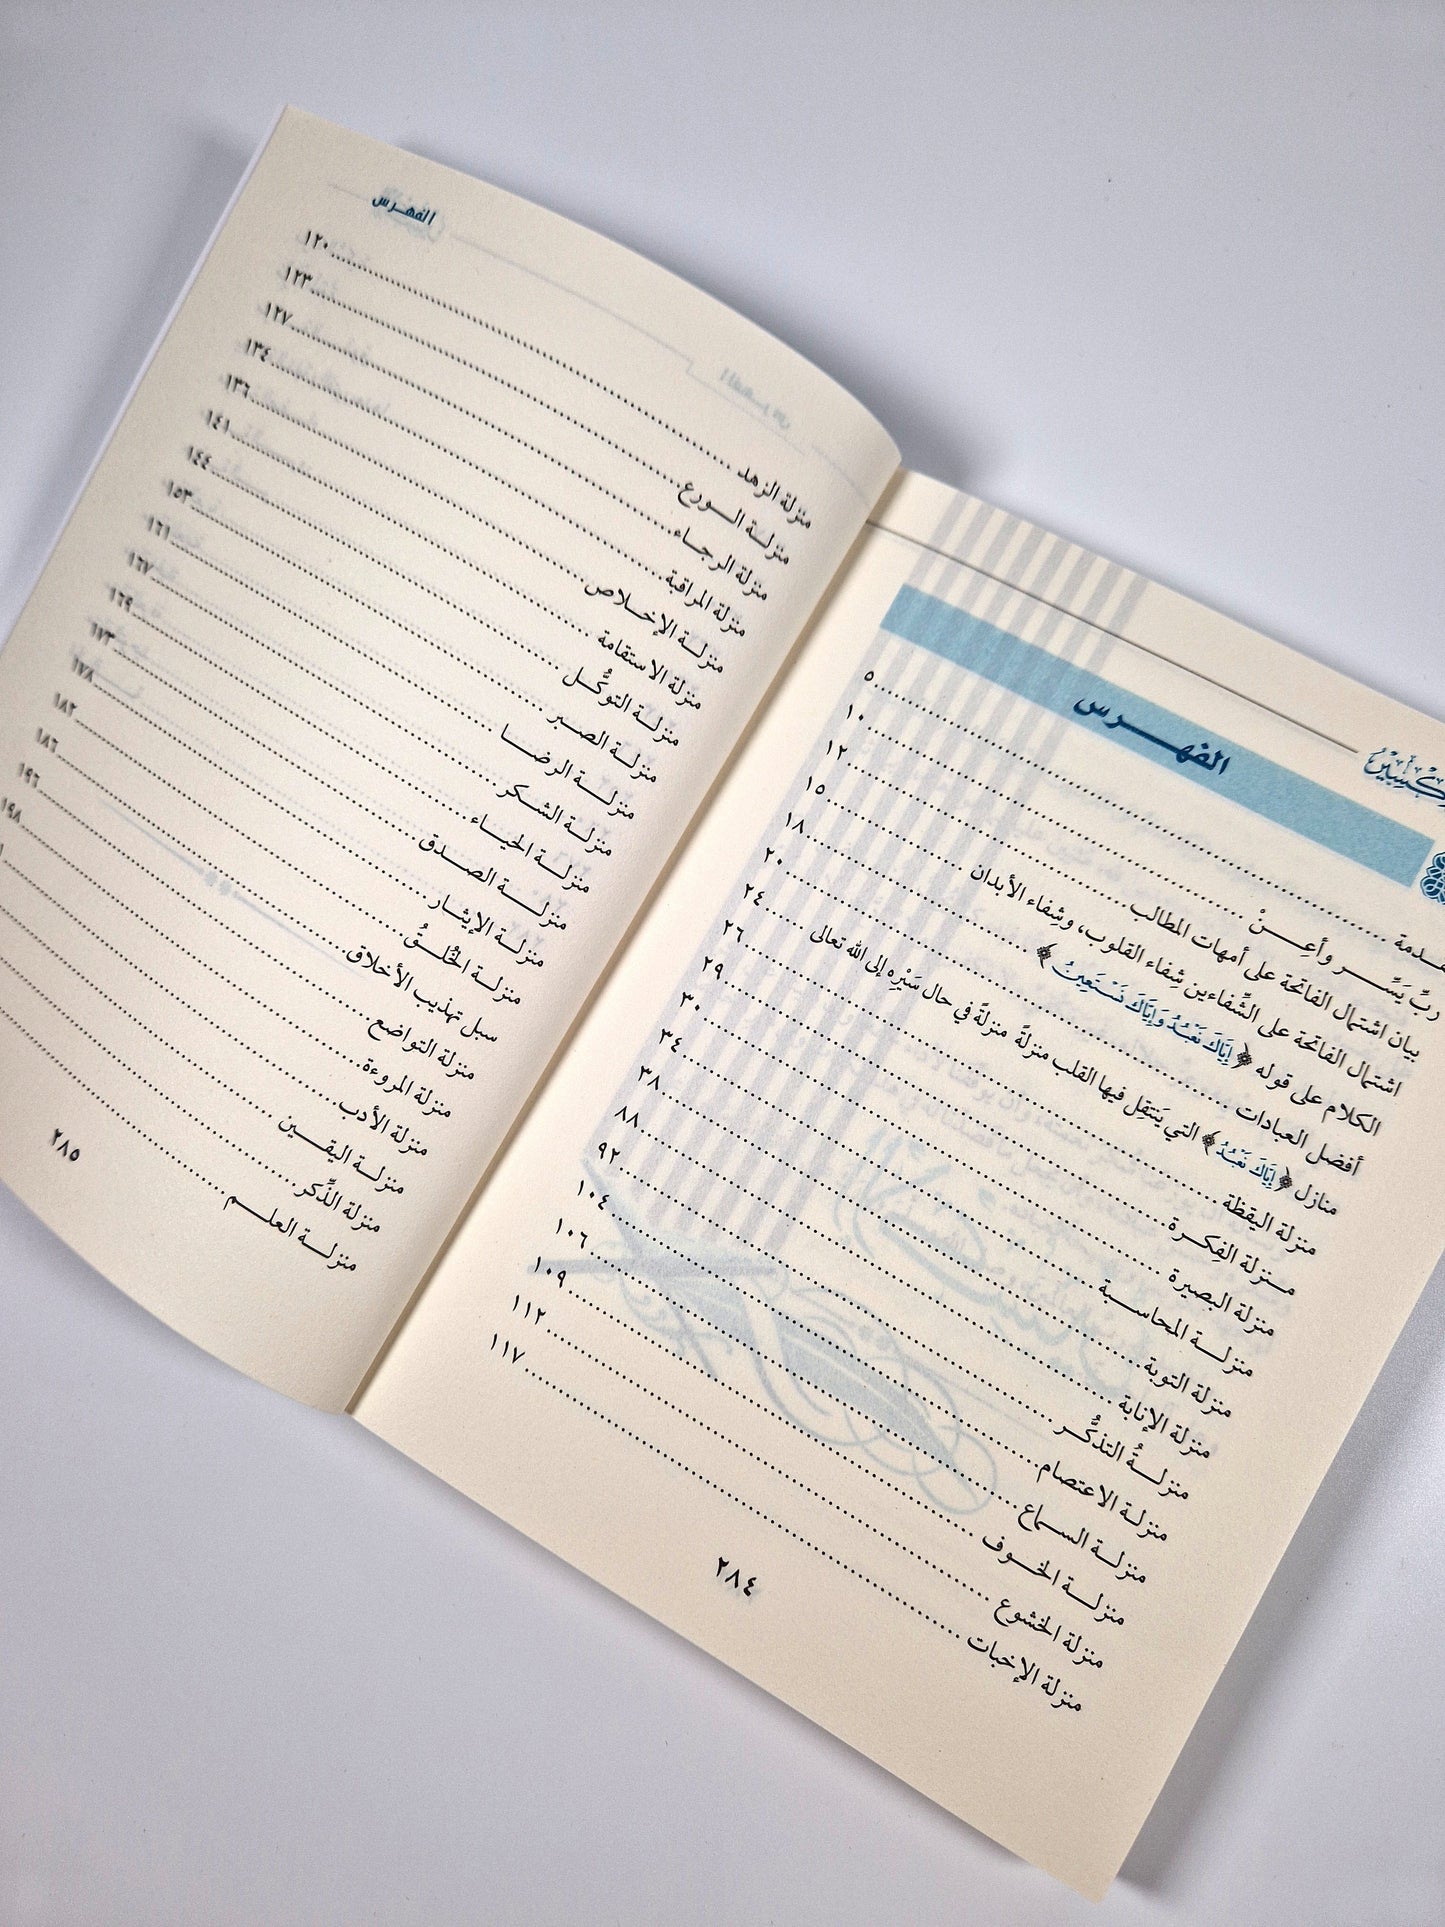 الفهرس
.......... ٥
ربِّ يَسِّر وأعِنْ .......... ١٠
بيان اشتمال الفاتحة على أمهات المطالب .......... ١٢
اشتمال الفاتحة على الشِّفاءين شِفاء القلوب، وشفاء الأبدان .......... ١٥
الكلام على قوله ﴿إِيَّاكَ نَعْبُدُ وَإِيَّاكَ نَسْتَعِينُ﴾ .......... ١٨
أفضل العبادات .......... ٢٠
منازل ﴿إِيَّاكَ نَعْبُدُ﴾ التي يَنتقِل فيها القلب منزلةً منزلةً في حال سَيْرِه إلى الله تعالى .......... ٢٤
منزلة اليقظة .......... ٢٦
منزلة الفِكرة .......... ٢٩
منزلة البصيرة .......... ٣٠
منزلة المحاسبة .......... ٣٤
منزلة التوبة .......... ٣٨
منزلة الإنابة .......... ٨٨
منزلةُ التذكُّر .......... ٩٢
منزلة الاعتصام .......... ١٠٤
منزلة السماع .......... ١٠٦
منزلة الخوف .......... ١٠٩
منزلة الخشوع .......... ١١٢
منزلة الإخبات .......... ١١٧
٢٨٤
الفهرس
منزلة الزهد .......... ١٢٠
منزلة الورع .......... ١٢٣
منزلة الرجاء .......... ١٢٧
منزلة المراقبة .......... ١٣٤
منزلة الإخلاص .......... ١٣٦
منزلة الاستقامة .......... ١٤١
منزلة التوكُّل .......... ١٤٤
منزلة الصبر .......... ١٥٣
منزلة الرضا .......... ١٦١
منزلة الشكر .......... ١٦٧
منزلة الحياء .......... ١٦٩
منزلة الصدق .......... ١٧٣
منزلة الإيثار .......... ١٧٨
منزلة الخُلقُ .......... ١٨٢
سبل تهذيب الأخلاق .......... ١٨٦
منزلة التواضع .......... ١٩٦
منزلة المروءة .......... ١٩٨
منزلة الأدب ..........
منزلة اليقين ..........
منزلة الذِّكر ..........
منزلة العلم ..........
٢٨٥